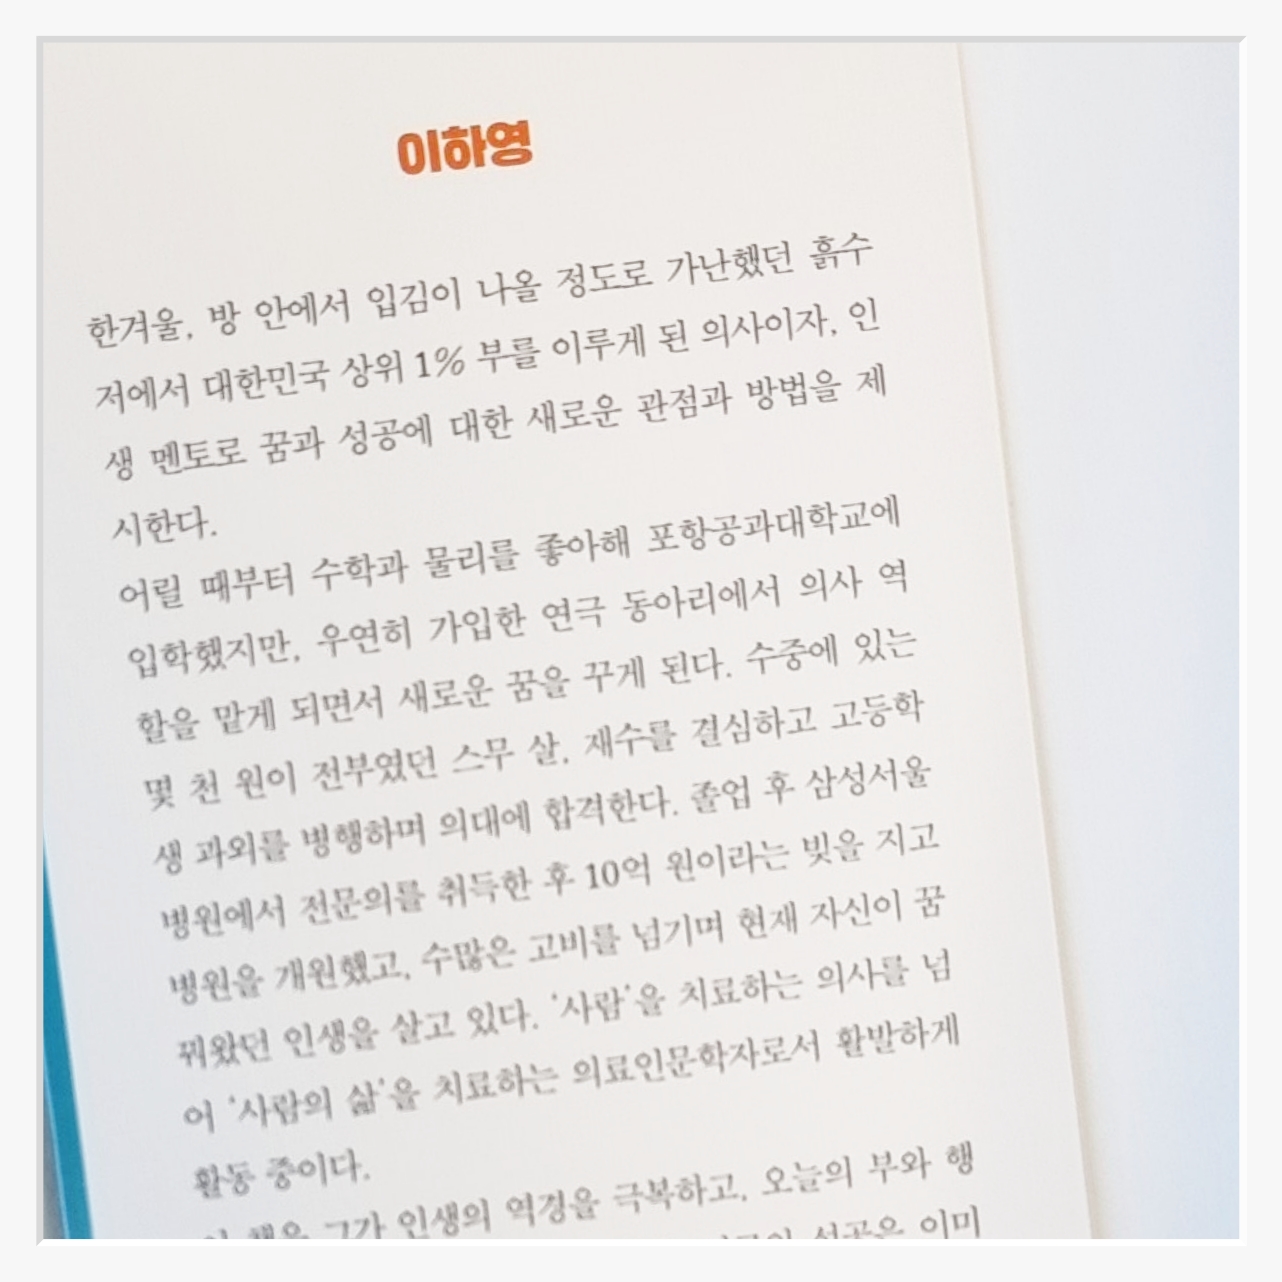 이하영
한겨울, 방 안에서 입김이 나올 정도로 가난했던 흙수
저에서 대한민국 상위 1% 부를 이루게 된 의사이자, 인
생 멘토로 꿈과 성공에 대한 새로운 관점과 방법을 제
시한다.
어릴 때부터 수학과 물리를 좋아해 포항공과대학교에
입학했지만, 우연히 가입한 연극 동아리에서 의사 역
할을 맡게 되면서 새로운 꿈을 꾸게 된다. 수중에 있는
몇 천 원이 전부였던 스무 살, 재수를 결심하고 고등학
생 과외를 병행하며 의대에 합격한다. 졸업 후 삼성서울
병원에서 전문의를 취득한 후 10억 원이라는 빚을 지고
병원을 개원했고, 수많은 고비를 넘기며 현재 자신이 꿈
꿔왔던 인생을 살고 있다. '사람'을 치료하는 의사를 넘
어 '사람의 삶'을 치료하는 의료인문학자로서 활발하게
활동 중이다.
책은 그가 인생의 역경을 극복하고, 오늘의 부와 행
성공은 이미